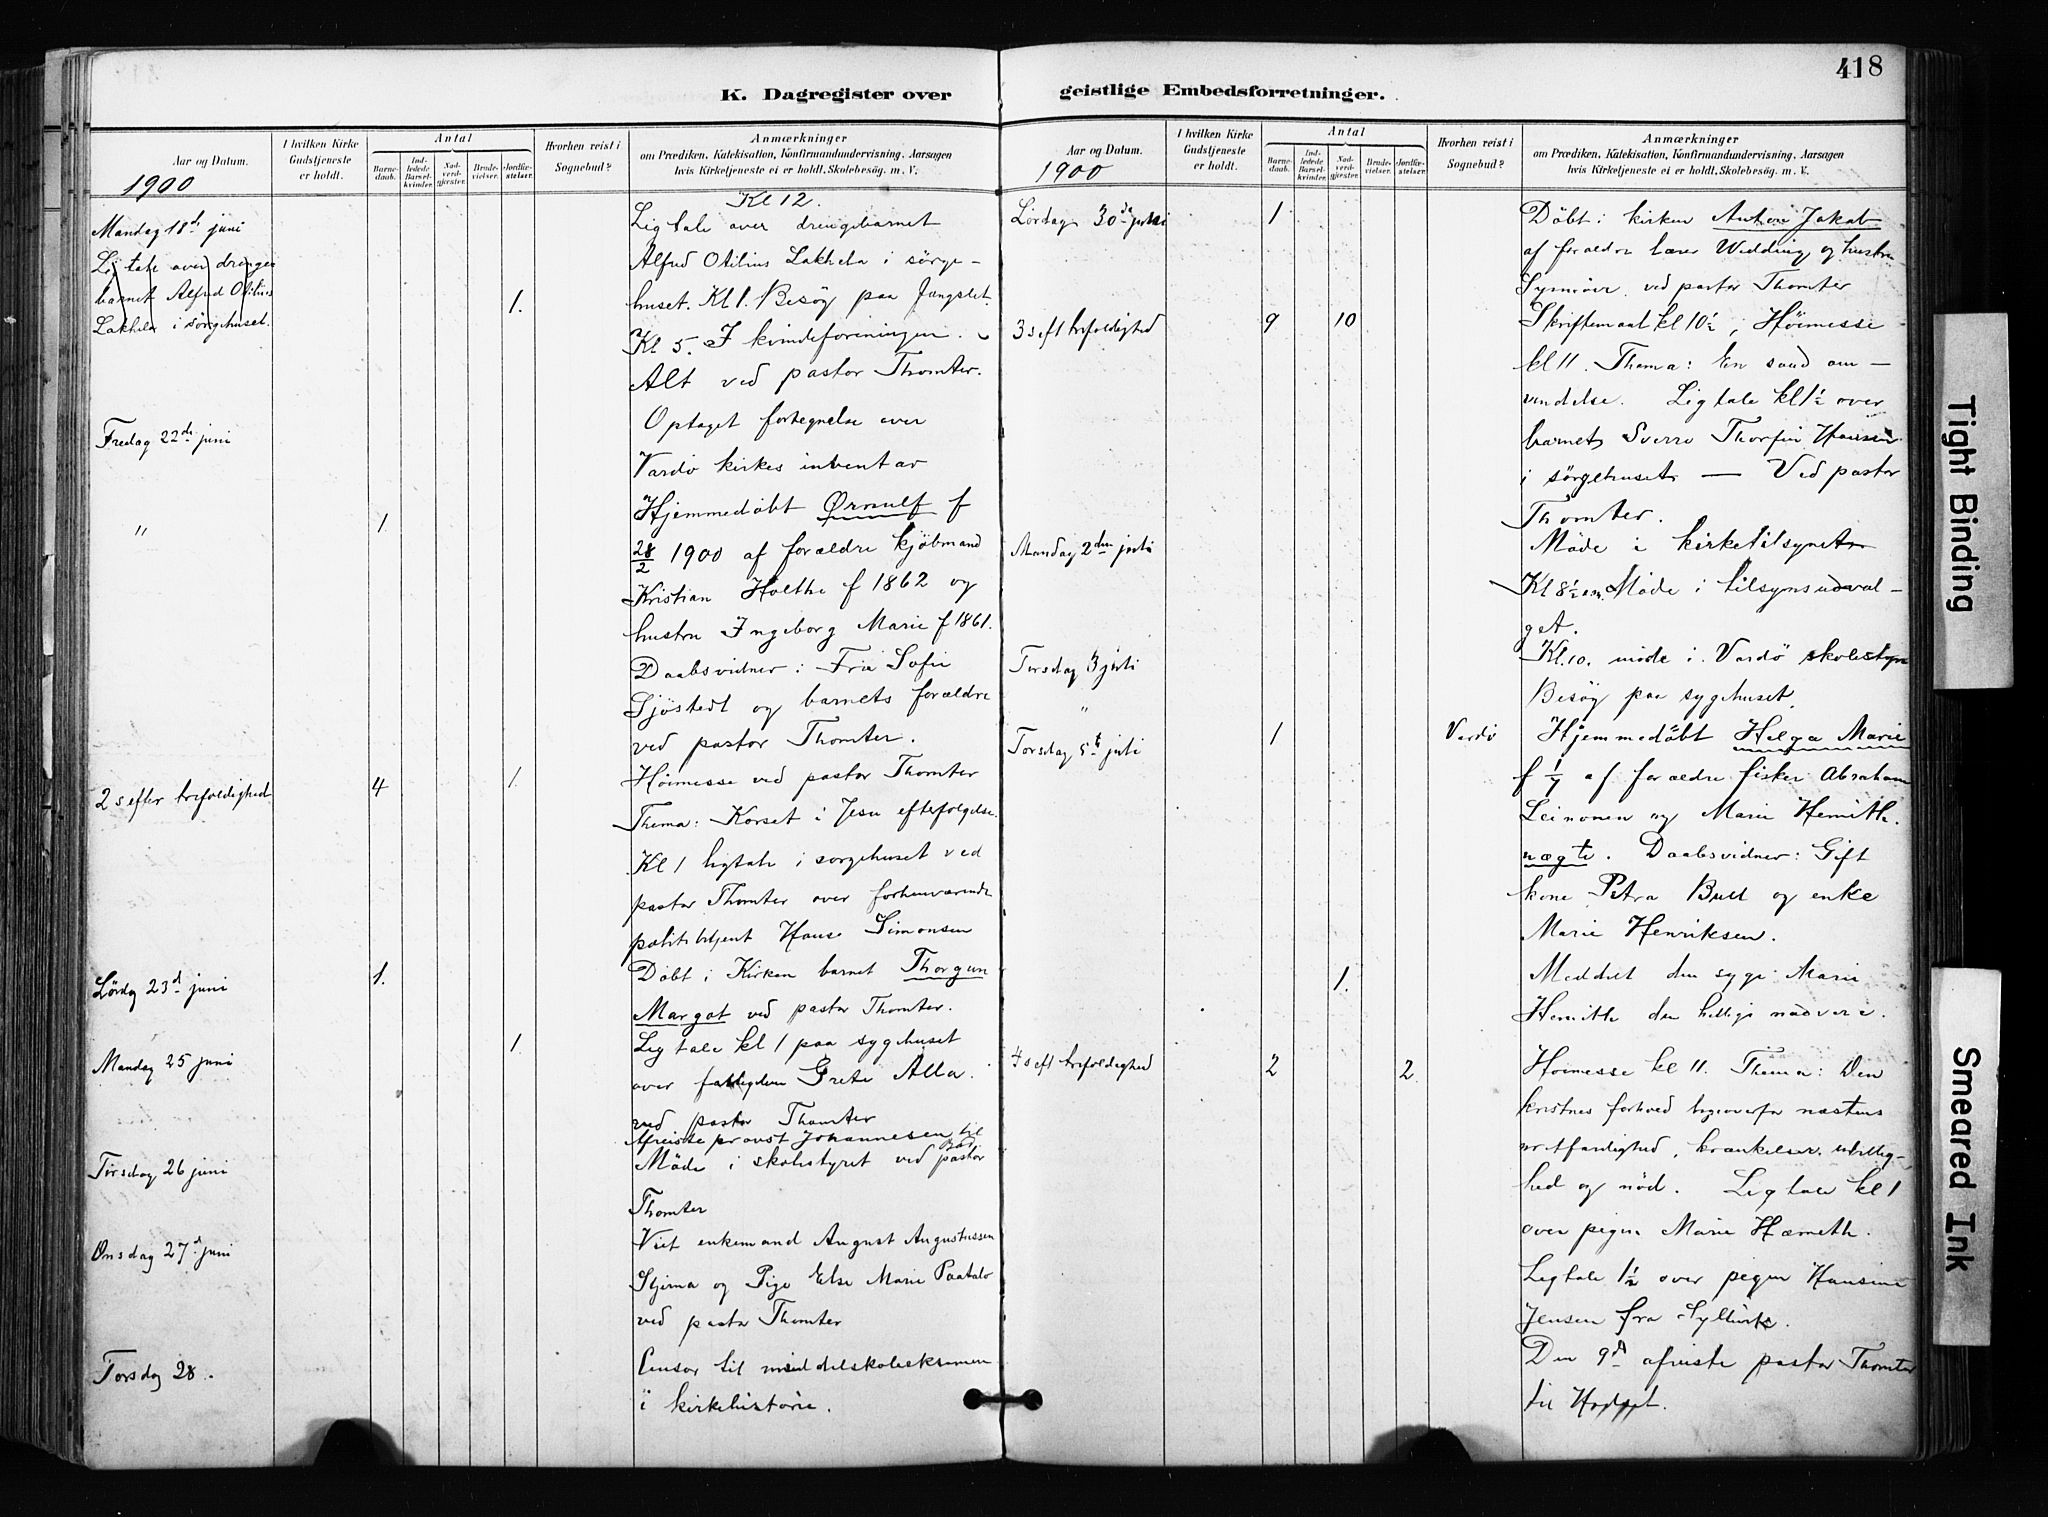 418
K. Dagregister over
Aar og Datum.
I hvilken Kirke Gudstjeneste er holdt.
Antal
Barnedaab.
Indledede Barselkvinder.
Nadverdgjester.
Brudevielser.
Jordfæstelser.
Hvorhen reist i Sognebud?
Anmærkninger
om Prædiken, Katekisation, Konfirmandundervisning, Aarsagen
hvis Kirketjeneste ei er holdt, Skolebesøg. m. V.
1900
Kl 12.
Mandag 18d juni
Ligtale over drengebarnet
Ligtale over drenge
Alfred Otilius Lakhela i sørge-
barnet Alfred Otilius
1.
huset. Kl 1. Besøg paa fængslet.
Lakhela i sørgehuset.
Kl 5. I kvindeforeningen.
Alt ved pastor Thomter.
Fredag 22de juni
Optaget fortegnelse over
Vardø kirkes inventar
"
1
Hjemmedøbt Ørnulf f
28/2 1900 af forældre kjøbmand
Kristian Holthe f 1862 og
hustru Ingeborg Marie f 1861.
Daabsvidner: Fru Sofie
Sjöstedt og barnets forældre
ved pastor Thomter.
2 s efter trefoldighed
4
1
Høimesse ved pastor Thomter
Thema: Korset i Jesu efterfølgelse.
Kl 1 ligtale i sørgehuset ved
pastor Thomter over forhenværende
politibetjent Hans Simonsen
Lørdg 23d juni
1.
Døbt i Kirken barnet Thorgun
Margot ved pastor Thomter.
Mandag 25 juni
1
Ligtale kl 1 paa sygehuset
over fattiglem Grete Alla.
ved pastor Thomter
Afreiste provst Johannesen til
Tirsdag 26 juni
Møde i skolestyret ved pastor
Thomter
Onsdag 27d juni
Viet enkemand August Augustussen
Stjerna og Pige Else Marie Paatalo
ved pastor Thomter
Torsdag 28.
Censor til middelskoleeksamen
i kirkehistorie.
geistlige Embedsforretninger.
Aar og Datum.
I hvilken Kirke Gudstjeneste er holdt.
Antal
Barnedaab.
Indledede Barselkvinder.
Nadverdgjester.
Brudevielser.
Jordfæstelser.
Hvorhen reist i Sognebud?
Anmærkninger
om Prædiken, Katekisation, Konfirmandundervisning, Aarsagen
hvis Kirketjeneste ei er holdt, Skolebesøg. m. V.
1900
Lørdag 30de juni
1
Døbt i kirken Anton Jakob
af forældre lærer Wedding og hustru
ved pastor Thomter
3 s eft trefoldighed
9
10
Skriftemaal kl 10½, Høimesse
kl 11. Thema: En sand om-
vendelse. Ligtale kl 1½ over
barnet Sverre Thorfin Hansen
i sørgehuset — Ved pastor
Thomter.
Mandag 2den juli
Møde i kirketilsynet
Kl 8½ em. Møde i tilsynsudval-
get.
Tirsdag 3 juli
Kl. 10. møde i Vardø skolestyre
"
Besøg paa sygehuset.
Torsdag 5t juli
1
Vardø
Hjemmedøbt Helga Marie
f 1/7 af forældre fisker Abraham
Leinonen og Marie Hemith.
nægte. Daabsvidner: Gift
kone Petra Bull og enke
Marie Henriksen.
1.
Meddelt den syge Marie
Hemith den hellige nadvere.
4 s eft trefoldighed
2
2
Høimesse kl 11. Thema: Den
kristnes forhold ligeoverfor næstens
uretfærdighed, krænkelser, ubillig-
hed og nød. Ligtale kl 1
over pigen Marie Hæmeth.
Ligtale 1½ over pigen Hansine
Jensen fra
Den 9d afreiste pastor Thomter
til